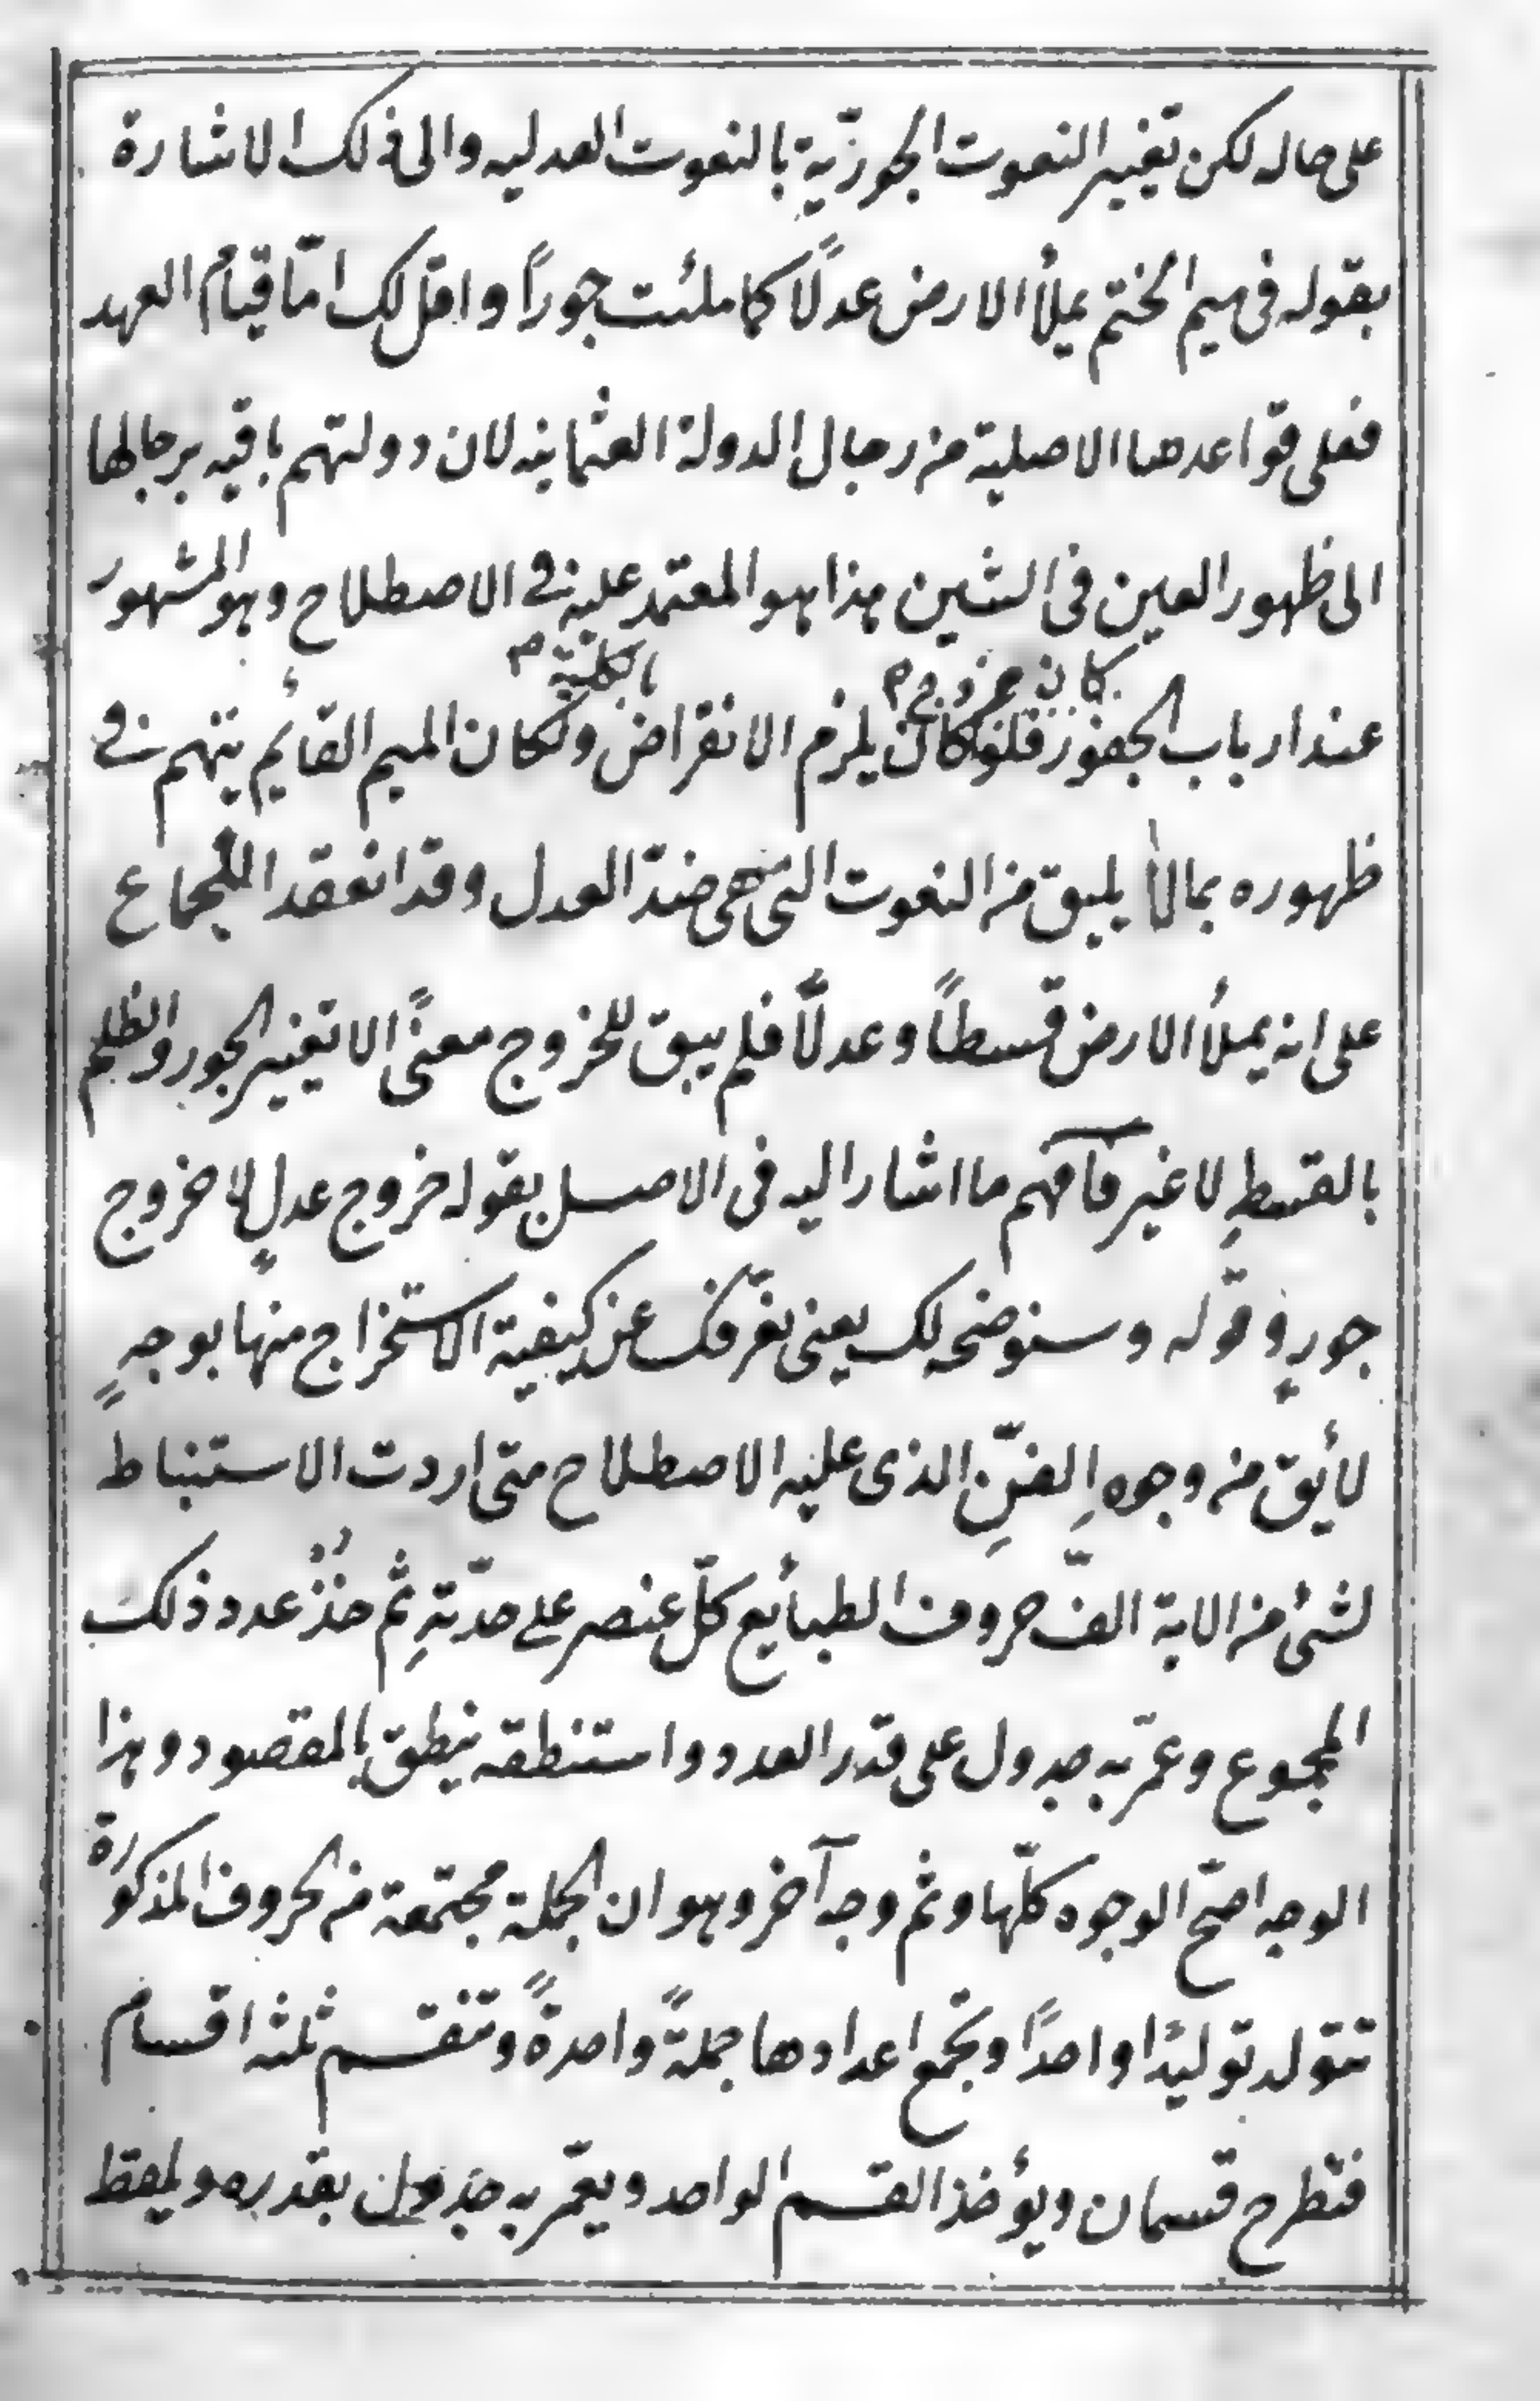 على حاله لكن تغيير النعوت الجوريّة بالنعوت العدليه والى ذلك الاشارة
بقوله فى ميم الختم يملأ الارض عدلًا كما ملئت جورًا واقل لك امّا قيام العهد
فعلى قواعدها الاصلية من رجال الدولة العثمانيه لان دولتهم باقيه برجالها
الى ظهور العين فى الشين هذا هو المعتمد عليه فى الاصطلاح وهو المشهور
كان خروج م بالكلية م
عند ارباب الجفور فلو كان يلزم الانقراض ولكان الميم القائم يتهم فى
ظهوره بما لا يليق من النعوت التى هى ضدّ العدل وقد انعقد الاجماع
على انه يملأ الارض قسطاً وعدلًا فلم يبق للخروج معنًى الا تغيير الجور والظلم
بالقسطِ لا غير فآفهم ما اشار اليه فى الاصل بقوله خروج عدلٍ لا خروج
جورٍ وقوله وسنوضحه لك يعنى نعرّفك عن كيفية الاستخراج منها بوجهٍ
لأيق من وجوه الفنّ الذى عليه الاصطلاح متى اردت الاستنباط
لشئ من الاية الفّ حروف الطبأيع كلّ عنصر على حدّتهِ ثم خُذْ عدد ذلك
المجموع وعمّر به جدول على قدر العدد واستنطقه ينطق بالمقصود وهذا
الوجه اصحّ الوجوه كلّها وثم وجه آخر وهو ان الجملة مجتمعة من الحروف المذكورة
تتولد توليدًا واحدًا وتجمع اعدادها جملةً واحدةً وتنقسم ثلثه اقسام
فتطرح قسمان ويؤخذ القسم الواحد ويعمّر به جدول بقدره ويلقط